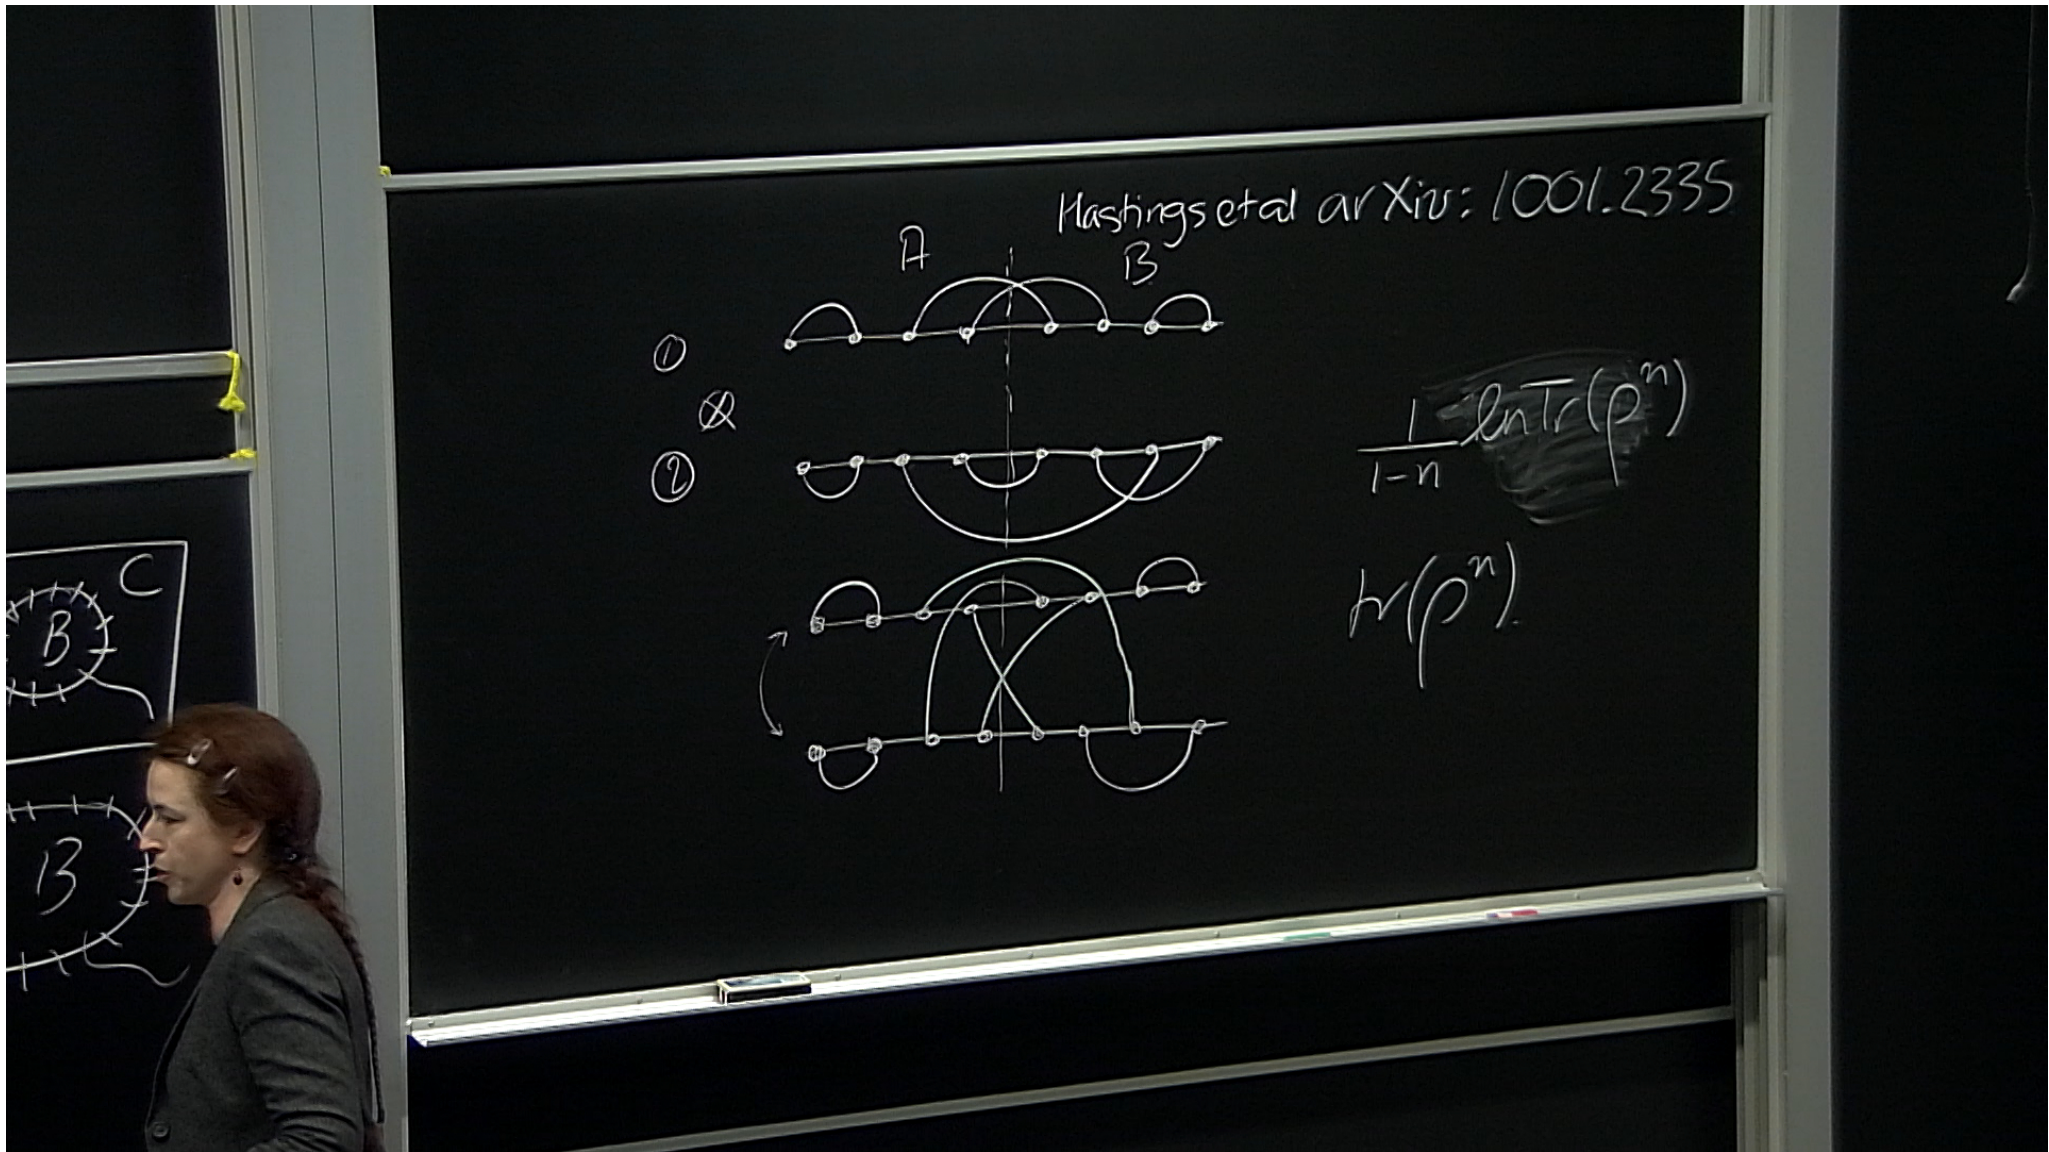 Hastings et al arXiv: 1001.2335
A B
①
⊗
②
1/(1-n) ln Tr(ρ^n)
tr(ρ^n).
C
B
B